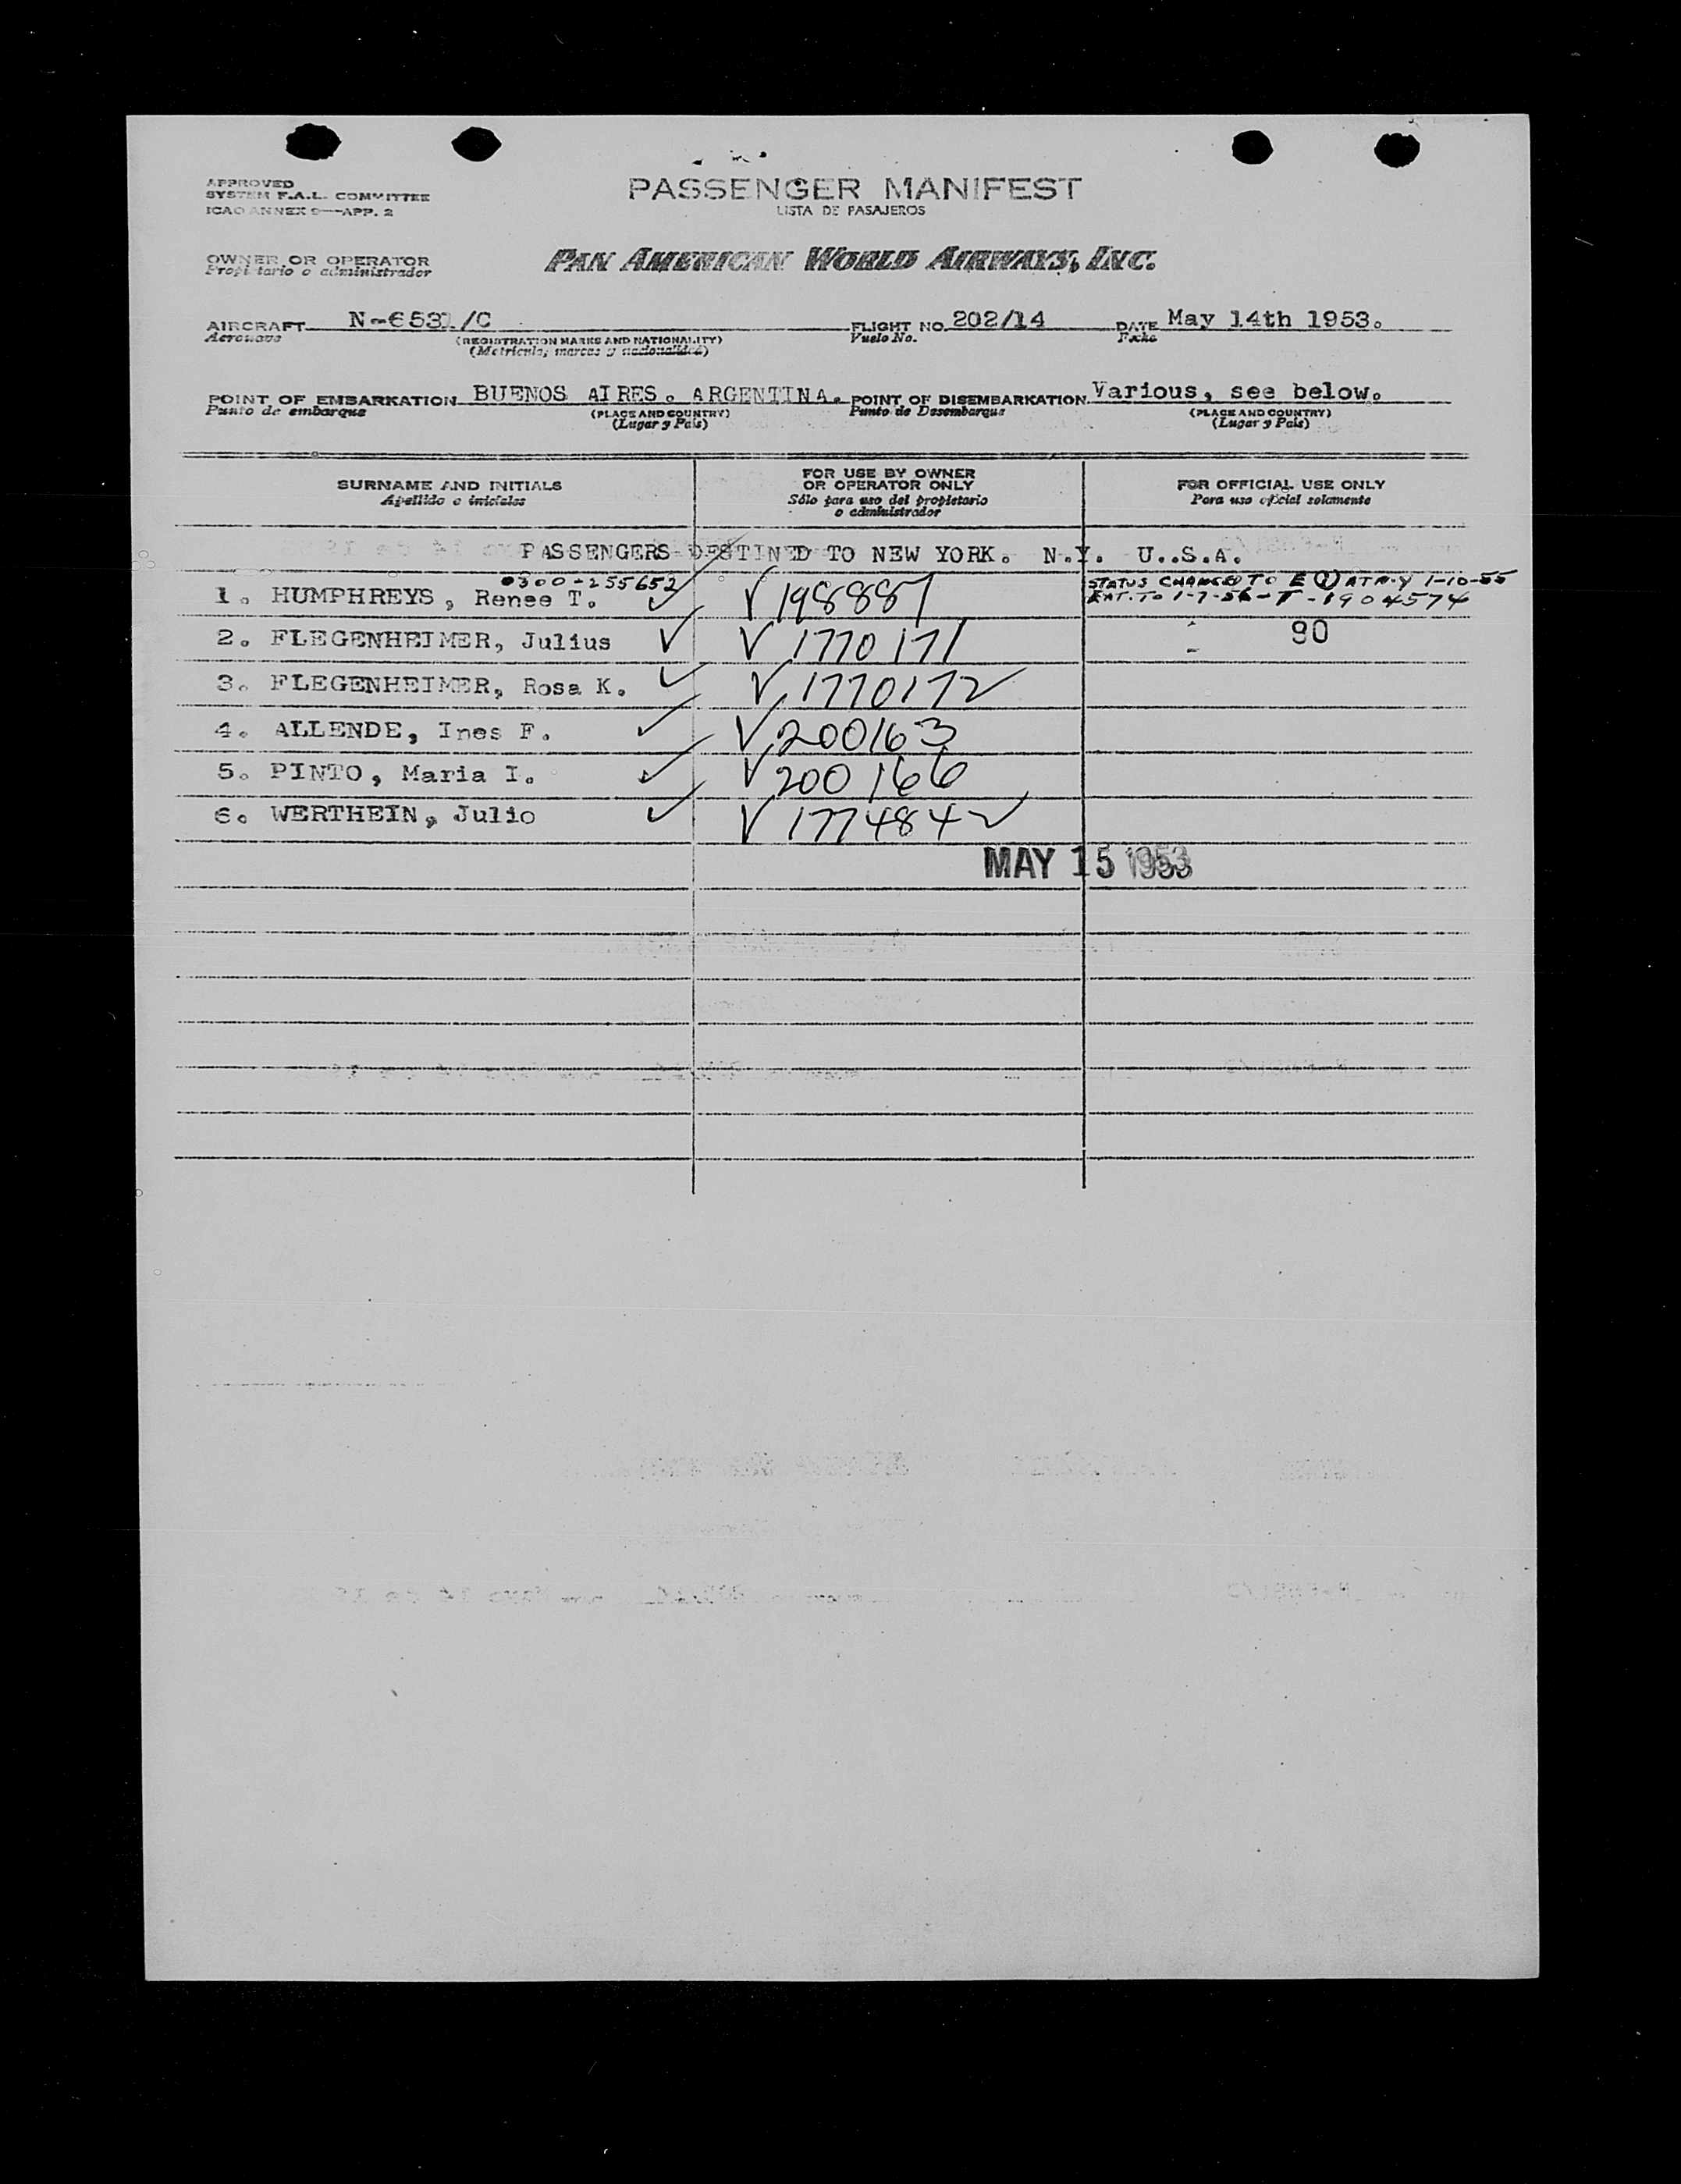 APPROVED
SYSTEM F.A.L. COMMITTEE
ICAO ANNEX 9—APP. 2
PASSENGER MANIFEST
LISTA DE PASAJEROS
OWNER OR OPERATOR
Propietario o administrador
PAN AMERICAN WORLD AIRWAYS, INC.
AIRCRAFT N-6531/C FLIGHT NO. 202/14 DATE May 14th 1953.
Aeronave (REGISTRATION MARKS AND NATIONALITY) Vuelo No. Fecha
(Matrícula, marcas y nacionalidad)
POINT OF EMBARKATION BUENOS AIRES. ARGENTINA. POINT OF DISEMBARKATION Various, see below.
Punto de embarque (PLACE AND COUNTRY) Punto de Desembarque (PLACE AND COUNTRY)
(Lugar y País) (Lugar y País)
SURNAME AND INITIALS
Apellido e iniciales
FOR USE BY OWNER
OR OPERATOR ONLY
Sólo para uso del propietario
o administrador
FOR OFFICIAL USE ONLY
Para uso oficial solamente
PASSENGERS DESTINED TO NEW YORK. N.Y. U..S.A.
0300-255652 STATUS CHANGED TO E (1) AT N.Y 1-10-55
1. HUMPHREYS, Renee T. ✓ ✓ 198887 EXT. TO 1-7-56-T-1904574
2. FLEGENHEIMER, Julius ✓ ✓ 1770171 90
3. FLEGENHEIMER, Rosa K. ✓ ✓ 1770172
4. ALLENDE, Ines F. ✓ ✓ 200163
5. PINTO, Maria I. ✓ ✓ 200166
6. WERTHEIN, Julio ✓ ✓ 1774842
MAY 15 1953